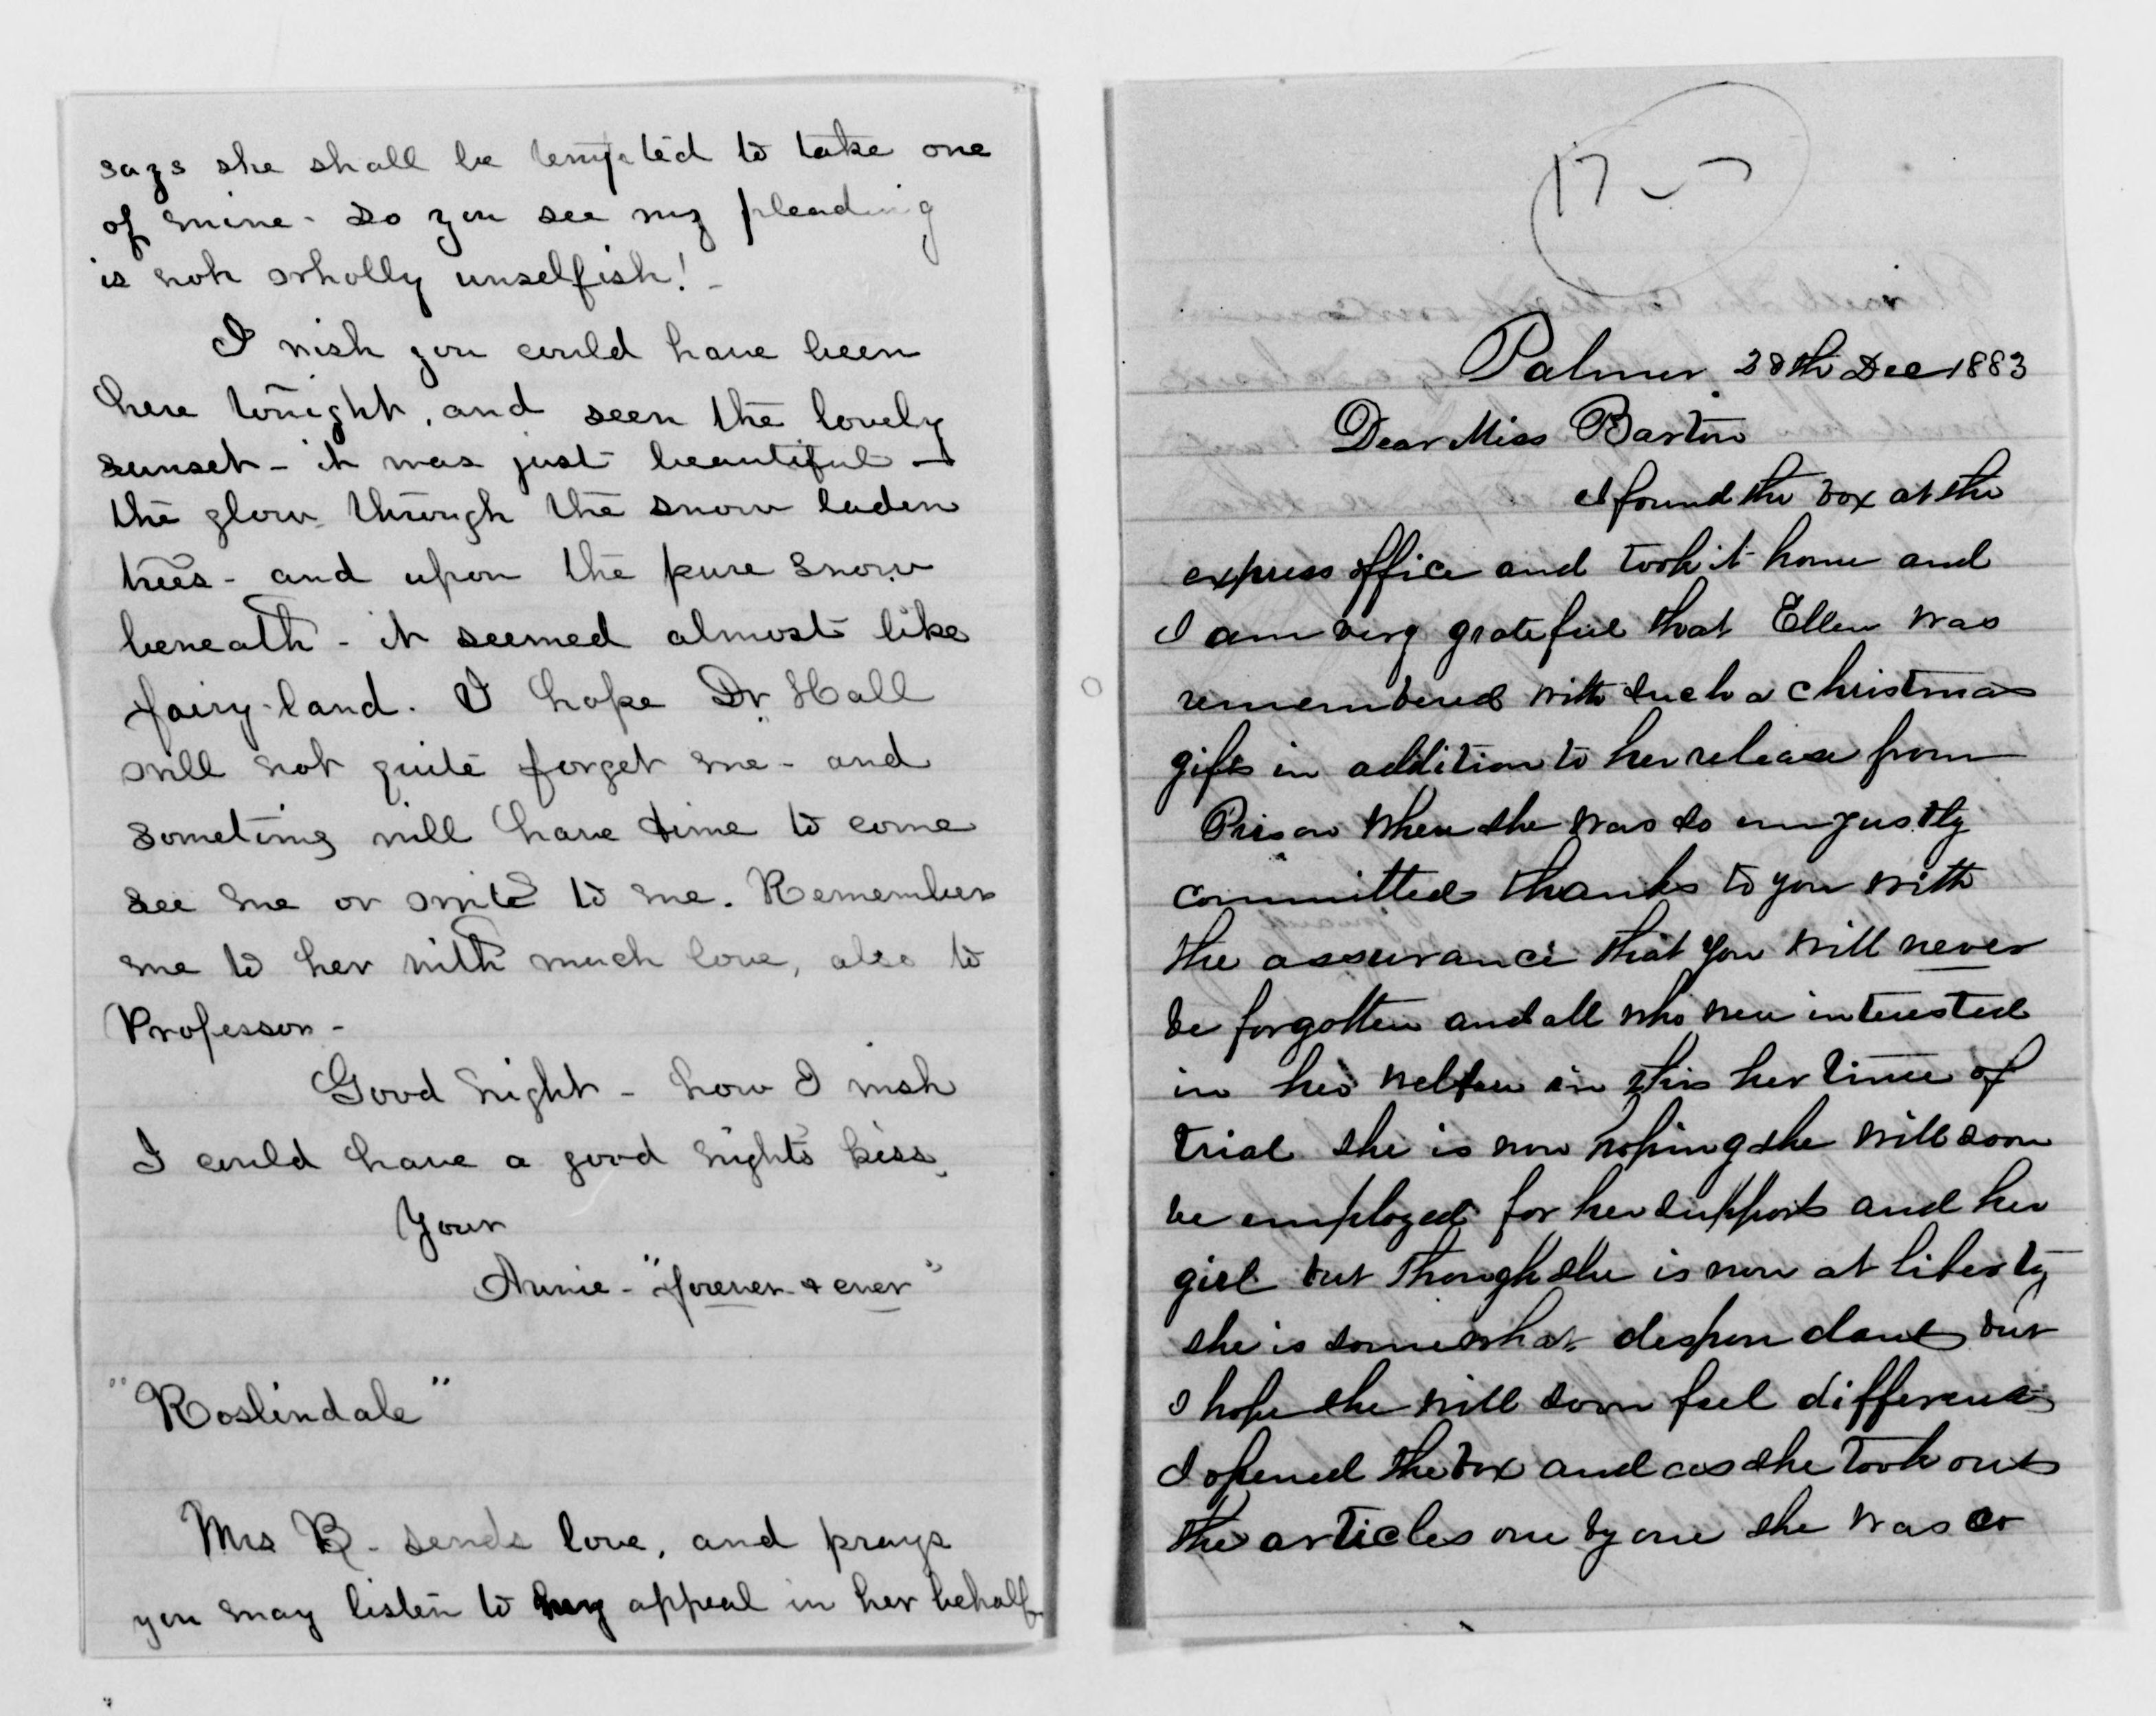 says she shall be tempted to take one
of mine - so you see my pleading
is not wholly unselfish! -
I wish you could have been
here tonight, and seen the lovely
sunset - it was just beautiful -
the glow through the snow laden
trees - and upon the pure snow
beneath - it seemed almost like
fairy-land. I hope Dr. Hall
will not quite forget me - and
sometime will have time to come
see me or write to me. Remember
me to her with much love, also to
Professor -
Good night - how I wish
I could have a good nights kiss.
Your
Annie - "forever & ever"
"Roslindale"
Mrs B. sends love, and prays
you may listen to my appeal in her behalf.
Palmer 28th Dec 1883
Dear Miss Barton
I found the box at the
express office and took it home and
I am very grateful that Ellen was
remembered with such a christmas
gift in addition to her release from
Prison when she was so unjustly
committed thanks to you with
the assurance that you will never
be forgotten and all who were interested
in her welfare in this her time of
trial she is now hoping she will soon
be employed for her support and her
girl but though she is now at liberty
she is somewhat despondant but
I hope she will soon feel different
I opened the box and as she took out
the articles one by one she was so